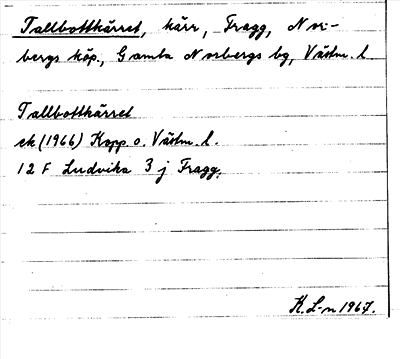 Tallbottkärret, kärr, Fragg, Nor-
bergs köp., Gamla Norbergs bg, Västm. l.
Tallbottkärret
ek (1966) Kopp. o. Västm. l.
12 F Ludvika 3 j Fragg.
K. L-n 1967.